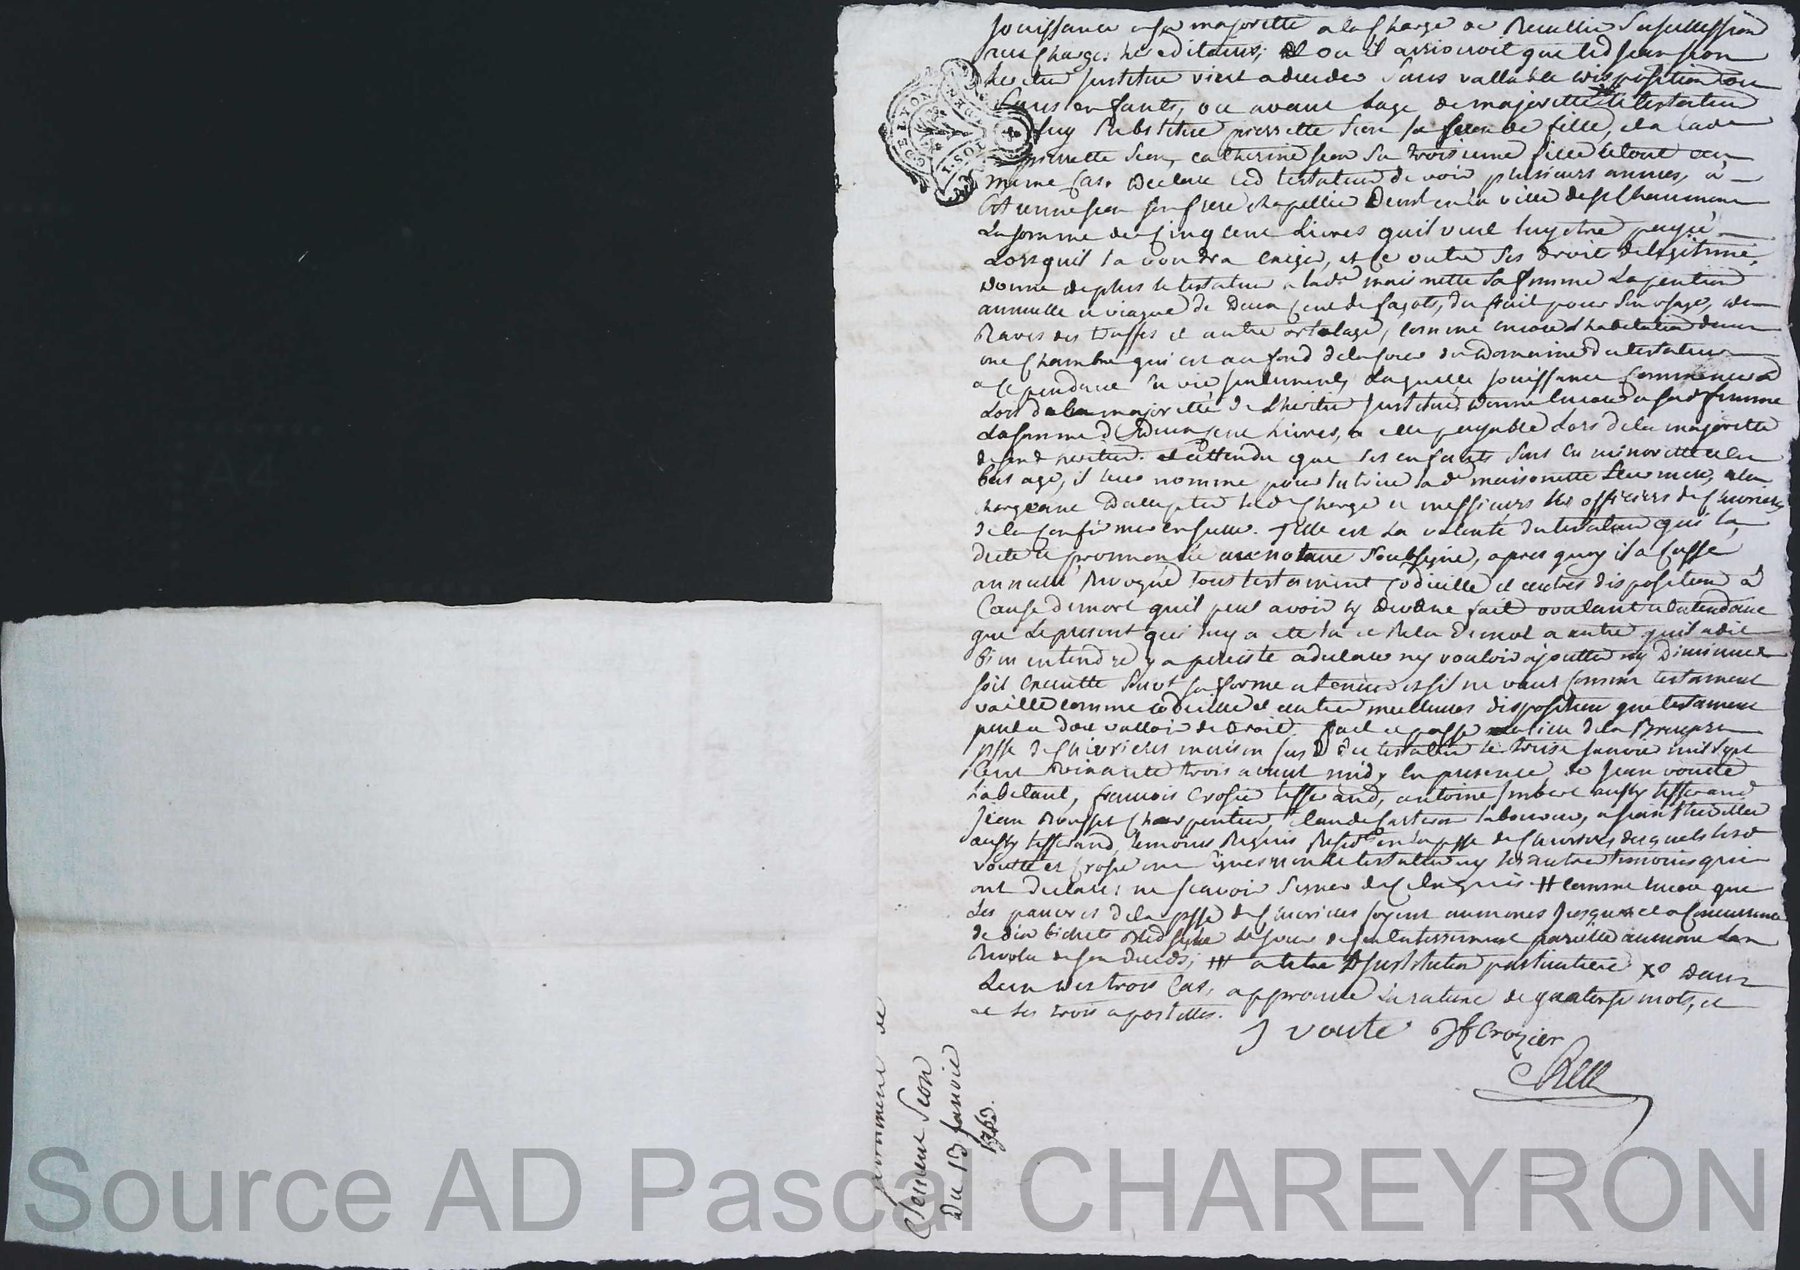 jouissance a sa majorette a la charge de Recullir sa sucession
sans charges hereditaires; et ou il arriveroit que led jean sion
heritier Institué vient a deceder sans vallable disposition ou
sans enfants, ou avant lage de majorette le testateur
luy substitue pierrette sion sa seconde fille, et a lade
pierrette sion, catherine sion sa troisieme fille le tout au
meme cas. Declare led testateur devoir plusieurs années, à
sion son frere chapellier Demt en la ville de st chaumon
La somme de Cinq cent Livres quil veut luy etre payé
Lorsquil la voudra exigé, et ce outre ses droit de legitime,
Donne de plus le testateur a lade maisonette sa femme la pention
annuelle et viagere de Deux Cent de fagots, du fruit pour son usage, des
Raves des truffes et autre ortolage, comme encore l'habitation dans
une chambre qui est au fond de la cour du Domaine du testateur
et ce pendant sa vie seulement, laquelle jouissance commencera
Lors de la majorette de l'heritier Institué, Donne encore a sade femme
La somme de Deux cent Livres, a elle payable Lors de la majorette
de sond heritier. et attendu que ses enfants sont en minorette et en
bas age, il leur nomme pour tutrice lade maisonette leur mere, en la
chargeant D'accepter lade charge et messieurs les officiers de Chevrieres
de la confirmer en icelle. Telle est la volonté du testateur qui la
dicte et prononcée au notaire soubsigné, apres quoy il a cassé
annullé, Revoqué tous testament codicille et autres disposition à
Cause de mort quil peut avoir cy devant fait voulant et entendant
que le present qui luy a ete lu et Relu de mot a autre quil a dit
bien entendre y a persisté a declaré ny vouloir ajoutter ny diminuer
soit executté selon sa forme et teneur et sil ne vaut comme testament
vaille comme codicille et autre meilleures disposition que testament
peut et doit valloir de Droit. fait et passé au lieu de la
psse de Chevrieres maison dud testateur le treize janvier mil sept
cent soixante trois avant midy En presence de jean voute
habitant, francois Crosier tisserand, antoine Imbert aussy tisserand
jean Rousset Charpentier, Claude laboureur,
aussy tisserand, temoins Requis Residts en la psse de Chevrieres desquels led
voutte et Crosier ont signés non le testateur ny les autre temoins qui
ont declaré ne scavoir signer de ce enquis # comme encore que
Les pauvres de la psse de Chevrieres soyent aumonés jusqua la Concurrence
de dix bichets Bled seigle le jour de son enterrement pareille aumone lan
Revolu de son Deceds; ## a titre d'Institution particuliere X° Dans
Lun des trois Cas, approuvé la rature de quatorze mots, et
et les trois apostilles.
J voute Jf Crozier
testament de
Clement Sion
Du 13 janvier
1763.
Source AD Pascal CHAREYRON